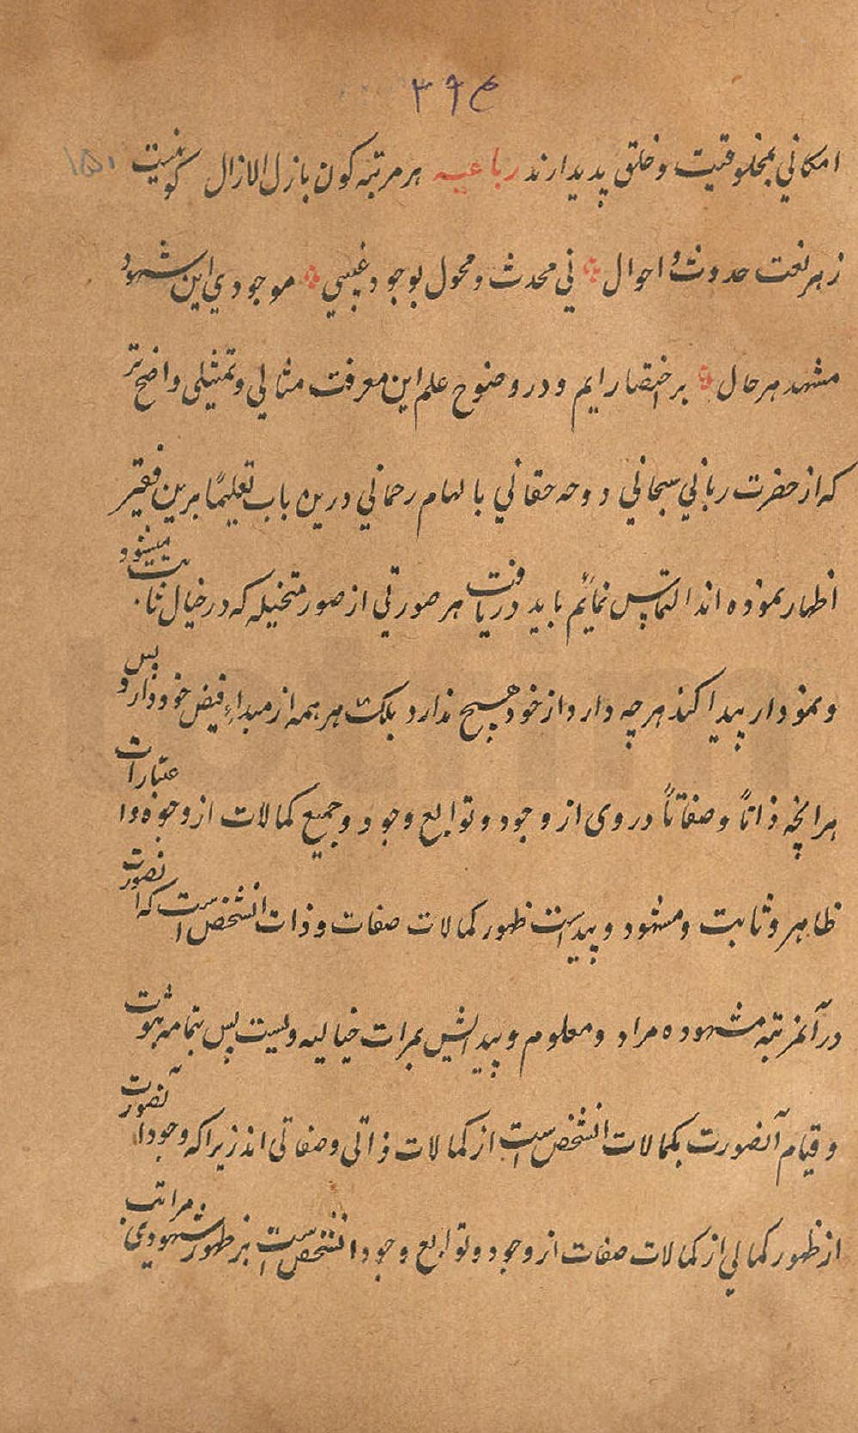 ۳۹۴
۱۵۱
امکانی بمخلوقیت و خلق پدیدارند رباعیه هر مرتبه کون بازل الازال کونیست
زهر نعت حدوث و احوال نی محدث و محول بوجود غیبی موجودی این شهود
مشهد هر حال بر اختصار ایم و در وضوح علم این معرفت مثالی و تمثیلی واضح تر
که از حضرت ربانی سبحانی و وحه حقانی با لهام رحمانی درین باب تعلیمًا برین فقیر
اظهار نموده اند التماس نمائیم باید دریافت هر صورتی از صور متخیله که در خیال ثابت میشود
و نمودار پیدا کند هر چه دارد از خود هیچ ندارد بلکه هر همه از مبداء فیض خود دارد پس
هر انچه ذاتاً و صفاتاً در وی از وجود و توابع وجود و جمیع کمالات از وجوه و اعتبارات
ظاهر و ثابت و مشهود و پیداست ظهور کمالات صفات و ذات انشخص است که انصورت
در آنمرتبه مشهوده مراد و معلوم و پیدایش بمرات خیالیه ویست پس بتمامه ثبوت
و قیام آنصورت بکمالات انشخص است از کمالات ذاتی و صفاتی اند زیرا که وجود آنصورت
از ظهور کمالی از کمالات صفات از وجود و توابع وجود انشخص است بر ظهور شهودی مراتب